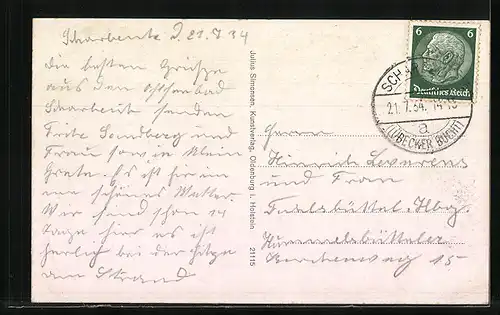 Scharbeutz d. 21.7.34
die besten Grüße
aus den Ostseebad
Scharbeutz senden
Fritz Sandberg und
Frau sowie Klein
Grete. Es ist hier
schönes Wetter.
Wir sind schon 14
Tage hier es ist
herlich bei der Hitze
am Strand
Julius Simonsen, Kunstverlag, Oldenburg i. Holstein 21115
6 6
Deutsches Reich
SCHAR
21.7.34. 14-15
a
(LÜBECKER BUCHT)
Herrn
Hinrich
und Frau
Fuhlsbüttel Hbg.
Hummelsbütteler
Kirchenweg 15